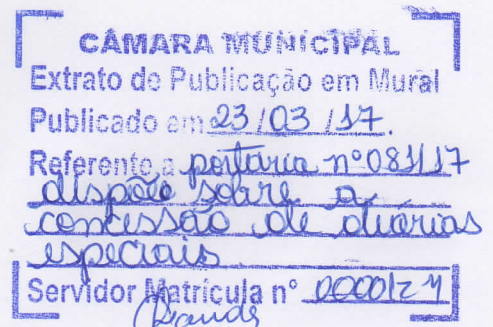 CÂMARA MUNICIPAL
Extrato de Publicação em Mural
Publicado em 23/03/17.
Referente a portaria nº 081/17
dispõe sobre a
concessão de diárias
especiais.
Servidor Matrícula nº